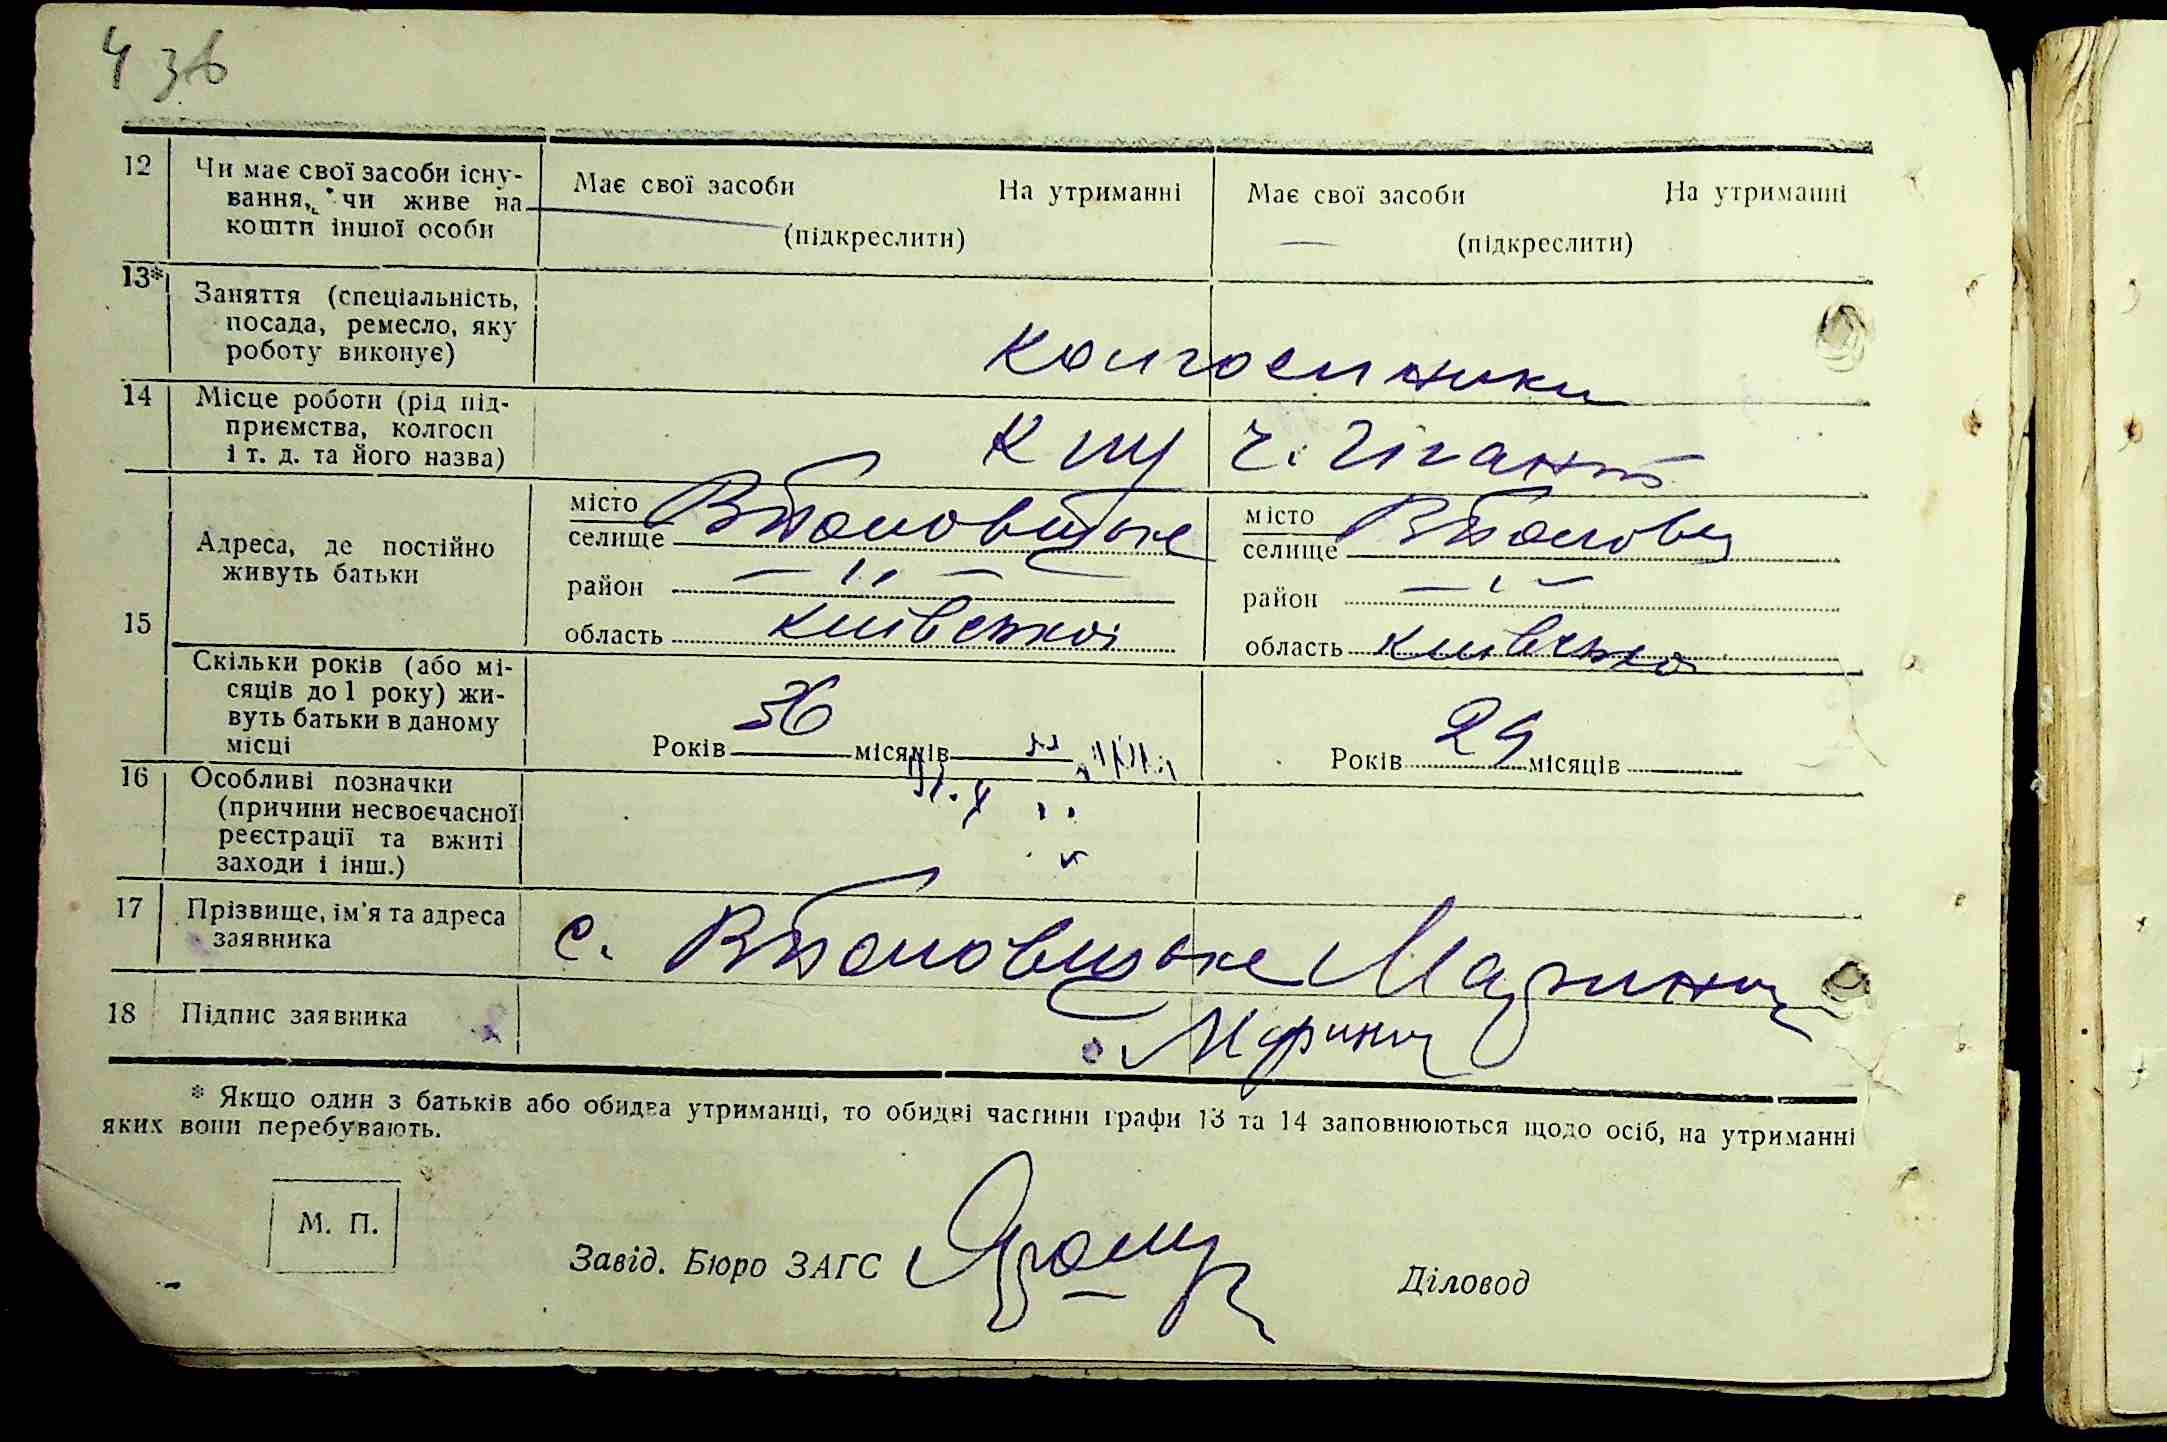 4 зв
12 Чи має свої засоби існу-
вання, чи живе на
кошти іншої особи
Має свої засоби На утриманні
(підкреслити)
Має свої засоби На утриманні
(підкреслити)
13* Заняття (спеціальність,
посада, ремесло, яку
роботу виконує)
колгоспники
14 Місце роботи (рід під-
приємства, колгосп
і т. д. та його назва)
Гігант
15 Адреса, де постійно
живуть батьки
місто
селище
район — " —
область Київської
місто
селище
район — " —
область Київсько
Скільки років (або мі-
сяців до 1 року) жи-
вуть батьки в даному
місці
Років 36 місяців
Років 29 місяців
16 Особливі позначки
(причини несвоєчасної
реєстрації та вжиті
заходи і інш.)
17 Прізвище, ім'я та адреса
заявника
с.
18 Підпис заявника
* Якщо один з батьків або обидва утриманці, то обидві частини графи 13 та 14 заповнюються щодо осіб, на утриманні
яких вони перебувають.
М. П.
Завід. Бюро ЗАГС
Діловод